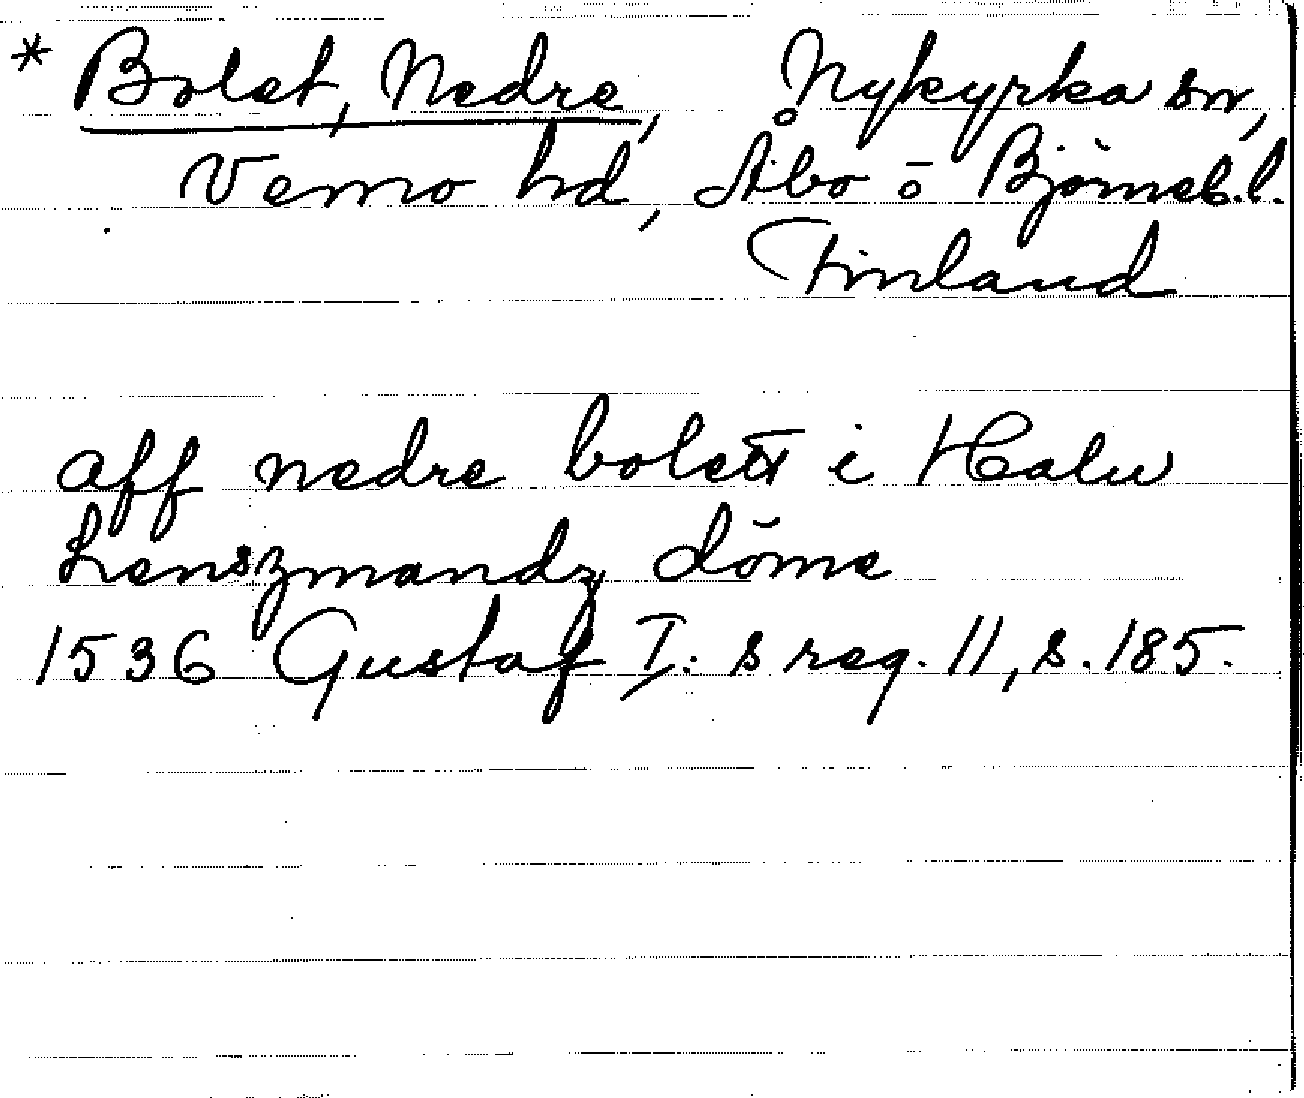 * Bolet, Nedre, Nykyrka sn,
Vemo hd, Åbo o Björneb. l.
Finland
aff nedre bolett i Halw
Lenszmandz döme
1536 Gustaf I:s reg. 11, s. 185.